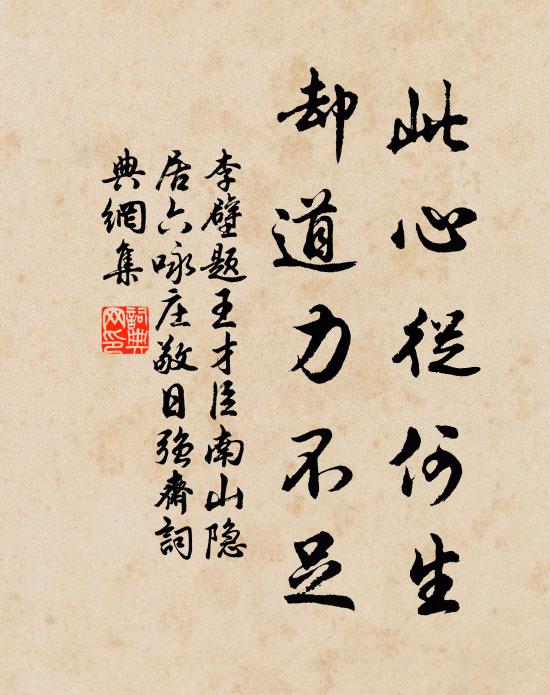 此心從何生
却道力不足
李壁題王才臣南山隐
居六咏庄敬日强齋詞
典網集
詞典網印